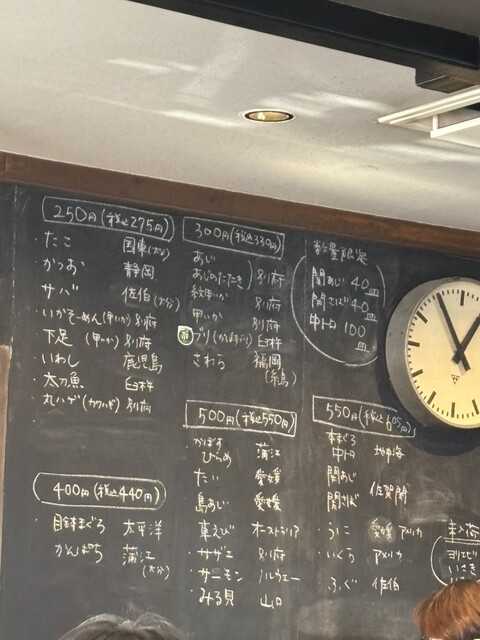 250円(税込275円)
・たこ 国東(大分)
・かつお 静岡
・サバ 佐伯(大分)
・いかそーめん(甲いか) 別府
・下足(甲いか) 別府
・いわし 鹿児島
・太刀魚 臼杵
・丸ハゲ(カワハギ) 別府
400円(税込440円)
・目鉢まぐろ 太平洋
・かんぱち 蒲江(大分)
300円(税込330円)
・あじ
・あじのたたき 別府
・紋甲いか 別府
・甲いか 別府
ブリ 臼杵
・さわら 福岡(糸島)
500円(税込550円)
・かぼすひらめ 蒲江
・たい 愛媛
・島あじ 愛媛
・車えび オーストラリア
・サザエ 別府
・サーモン ノルウェー
・みる貝 山口
数量限定
関あじ 40皿
関さば 40皿
中トロ 100皿
550円(税込605円)
本まぐろ中トロ 地中海
・関あじ
関さば 佐賀関
・うに 愛媛 アメリカ
・いくら アメリカ
・ふぐ 佐伯
未入荷
ヨリエビ
いさき